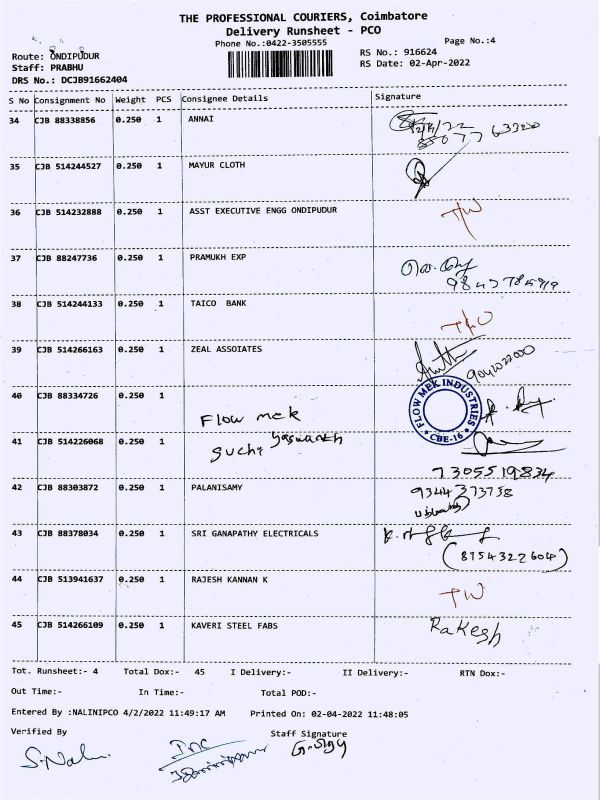 THE PROFESSIONAL COURIERS, Coimbatore
Delivery Runsheet - PCO
Phone No.:0422-3505555
Page No.:4
Route: ONDIPUDUR
RS No.: 916624
Staff: PRABHU
RS Date: 02-Apr-2022
DRS No.: DCJB91662404
S No Consignment No Weight PCS Consignee Details Signature
34 CJB 88338856 0.250 1 ANNAI
35 CJB 514244527 0.250 1 MAYUR CLOTH
36 CJB 514232888 0.250 1 ASST EXECUTIVE ENGG ONDIPUDUR
37 CJB 88247736 0.250 1 PRAMUKH EXP
38 CJB 514244133 0.250 1 TAICO BANK
39 CJB 514266163 0.250 1 ZEAL ASSOIATES
40 CJB 88334726 0.250 1 Flow mek
FLOW MEK INDUSTRIES * CBE-16 *
41 CJB 514226068 0.250 1 Suchi
7305519834
42 CJB 88303872 0.250 1 PALANISAMY 9344373758
43 CJB 88378034 0.250 1 SRI GANAPATHY ELECTRICALS
(8154322604)
44 CJB 513941637 0.250 1 RAJESH KANNAN K TW
45 CJB 514266109 0.250 1 KAVERI STEEL FABS Rakesh
Tot. Runsheet:- 4 Total Dox:- 45 I Delivery:- II Delivery:- RTN Dox:-
Out Time:- In Time:- Total POD:-
Entered By :NALINIPCO 4/2/2022 11:49:17 AM Printed On: 02-04-2022 11:48:05
Verified By Staff Signature